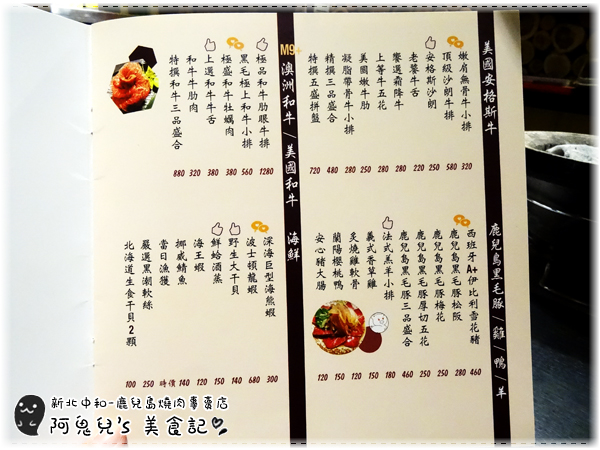 美國安格斯牛
嫩肩無骨牛小排 320
頂級沙朗牛排 580
安格斯沙朗 250
老饕牛舌 220
饗選霜降牛 280
上等牛五花 280
美國嫩牛肋 250
凝脂帶骨牛小排 280
精撰三品盛合 480
特撰五盛拼盤 720
M9+澳洲和牛/美國和牛
極品和牛肋眼牛排 1280
黑毛極上和牛小排 560
極盛和牛牡蠣肉 380
上選和牛牛舌 380
和牛牛肋肉 320
特撰和牛三品盛合 880
鹿兒島黑毛豚/雞/鴨/羊
西班牙A+伊比利雪花豬 460
鹿兒島黑毛豚松阪 280
鹿兒島黑毛豚梅花 250
鹿兒島黑毛豚厚切五花 250
鹿兒島黑毛豚三品盛合 460
法式羔羊小排 180
義式香草雞 150
炙燒雞軟骨 120
蘭陽櫻桃鴨 150
安心豬大腸 120
海鮮
深海巨型海熊蝦 300
波士頓龍蝦 680
野生大干貝 140
鮮蛤酒蒸 150
海王蝦 120
挪威鯖魚 140
當日漁獲 時價
嚴選黑潮軟絲 250
北海道生食干貝2顆 100
新北中和-鹿兒島燒肉專賣店
阿鬼兒's 美食記